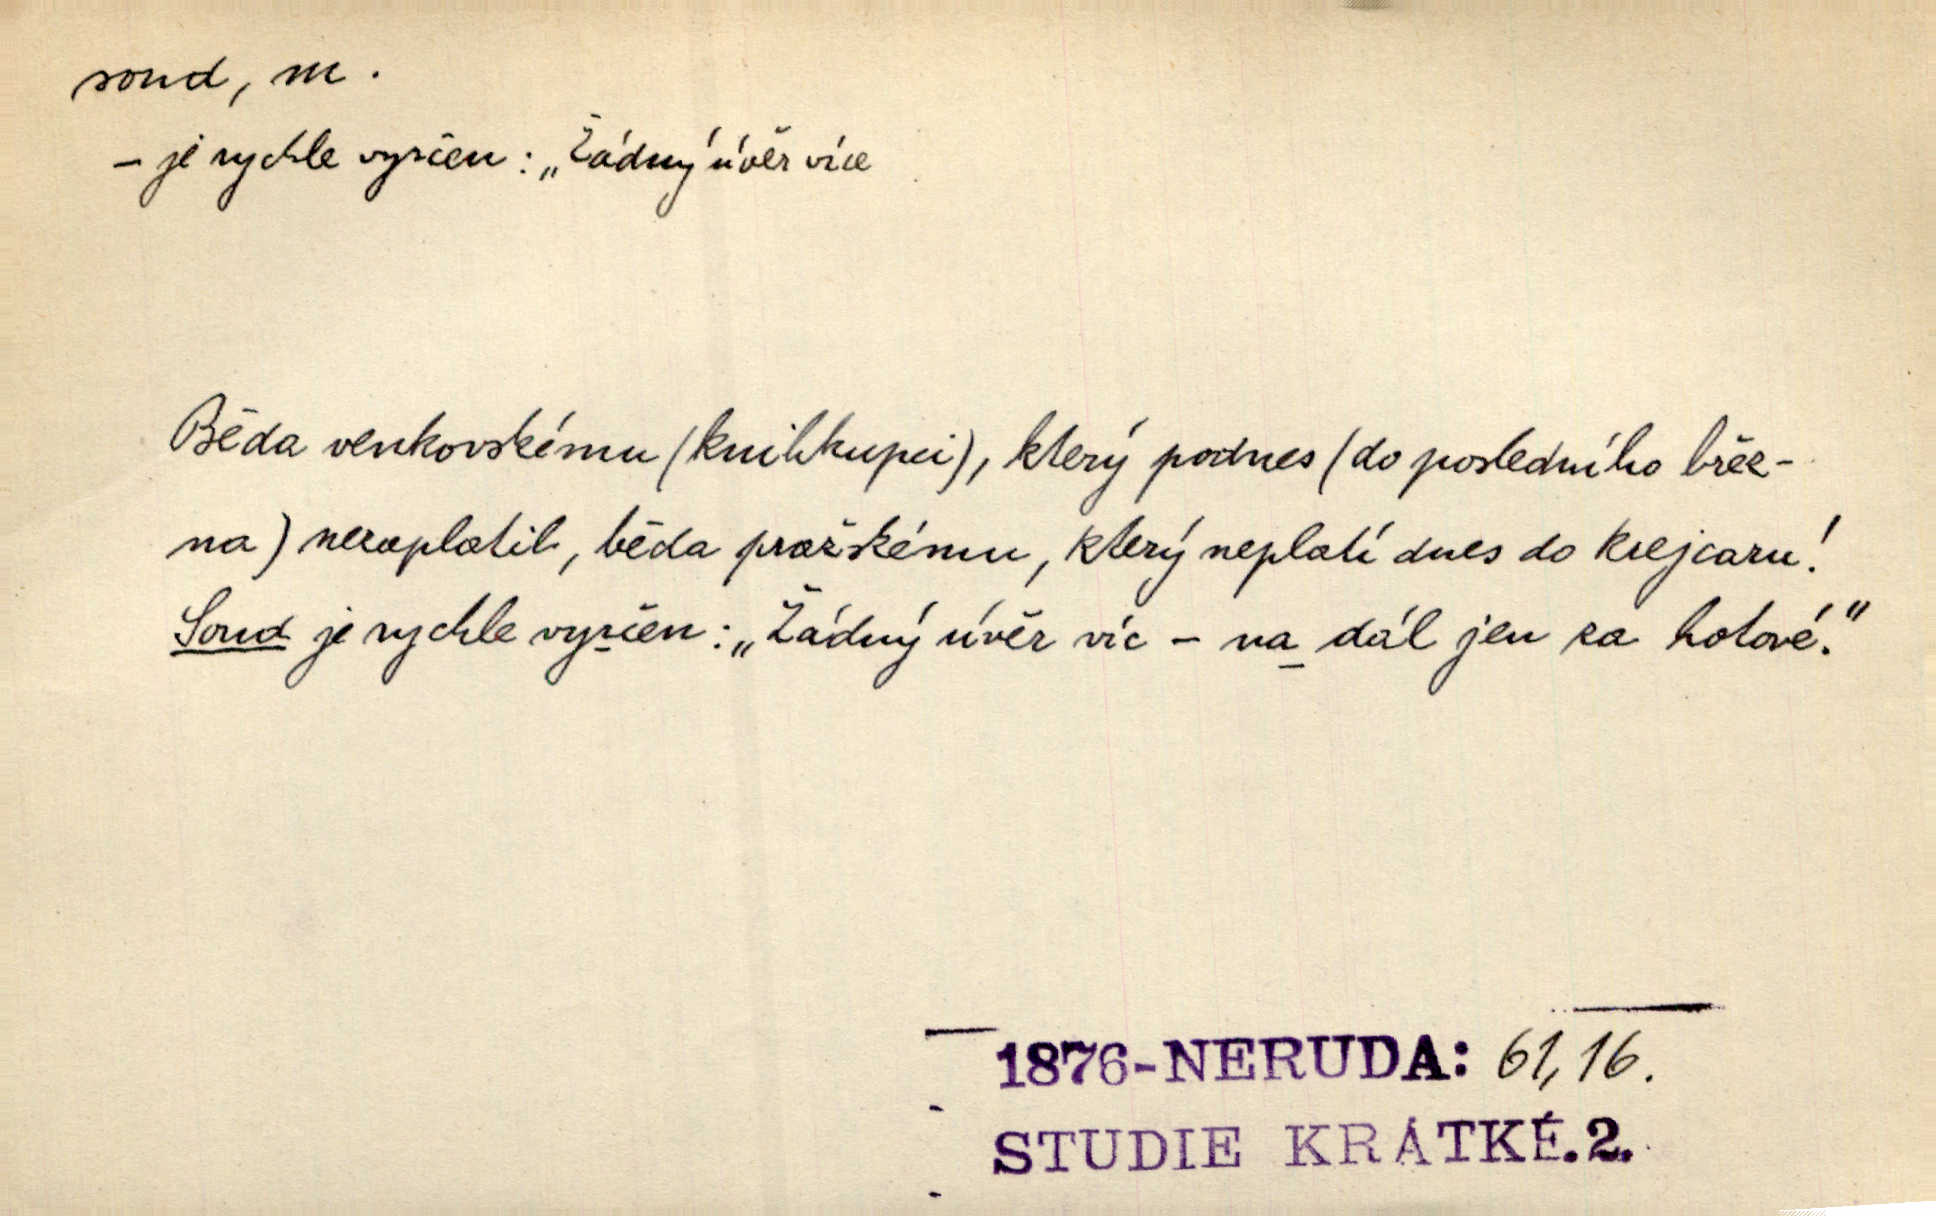 soud, m.
– je rychle vyrčen: „Žádný úvěr více
Běda venkovskému (knihkupci), který podnes (do posledního břez-
na) nezaplatil, běda pražskému, který neplatí dnes do krejcaru!
Soud je rychle vyrčen: „Žádný úvěr víc – na dál jen za hotové."
1876-NERUDA: 61,16.
STUDIE KRÁTKÉ.2.